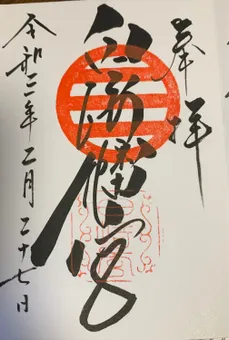 奉拝
幡宮
令和二年二月二十七日